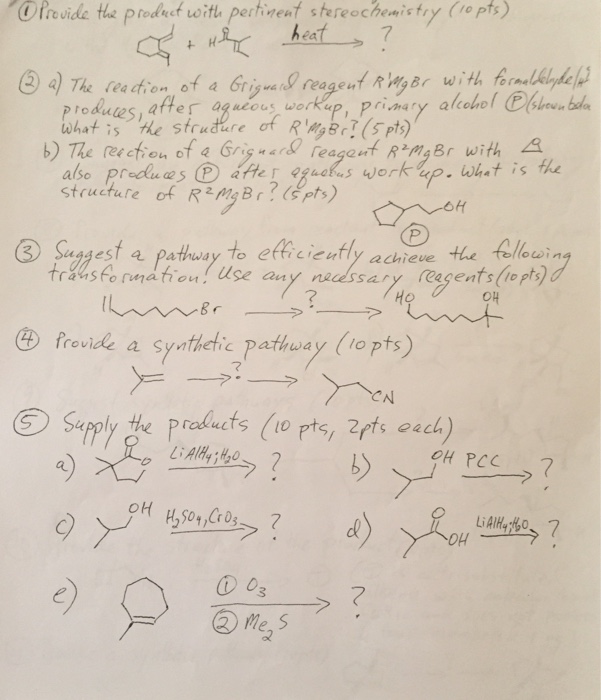 ① Provide the product with pertinent stereochemistry (10 pts)
+ H heat ?
② a) The reaction of a Grignard reagent R'MgBr with formaldehyde
produces, after aqueous workup, primary alcohol Ⓟ (shown below
What is the structure of R'MgBr? (5 pts)
b) The reaction of a Grignard reagent R²MgBr with
also produces Ⓟ after aqueous work up. What is the
structure of R²MgBr? (5 pts)
OH
Ⓟ
③ Suggest a pathway to efficiently achieve the following
transformation! Use any necessary reagents (10 pts)
Br ? HO OH
④ Provide a synthetic pathway (10 pts)
? CN
⑤ Supply the products (10 pts, 2pts each)
a) O O LiAlH4; H2O ? b) OH PCC ?
c) OH H2SO4, CrO3 ? d) O OH LiAlH4; H2O ?
e) ① O3 ?
② Me2S